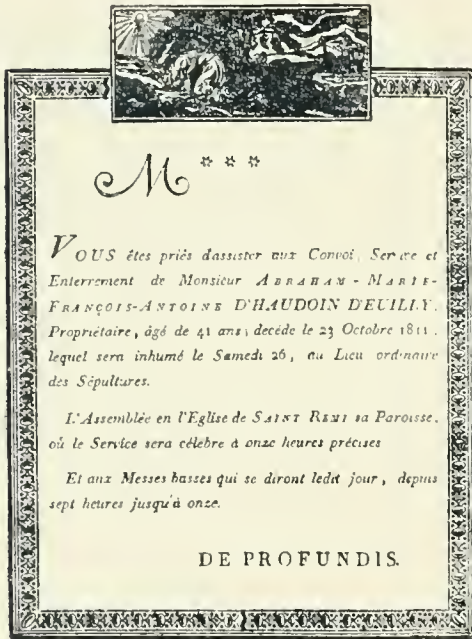 M ***
VOUS êtes priés d'assister aux Convoi, Service et
Enterrement de Monsieur ABRAHAM-MARIE-
FRANÇOIS-ANTOINE D'HAUDOIN D'EUILLY,
Propriétaire, âgé de 41 ans, décédé le 23 Octobre 1811,
lequel sera inhumé le Samedi 26, au Lieu ordinaire
des Sépultures.
L'Assemblée en l'Eglise de SAINT REMI sa Paroisse,
où le Service sera célébre à onze heures précises
Et aux Messes basses qui se diront ledit jour, depuis
sept heures jusqu'à onze.
DE PROFUNDIS.